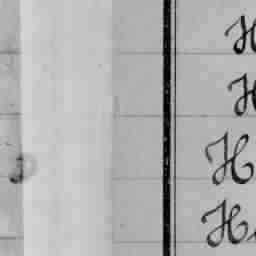 H
H
H
H.